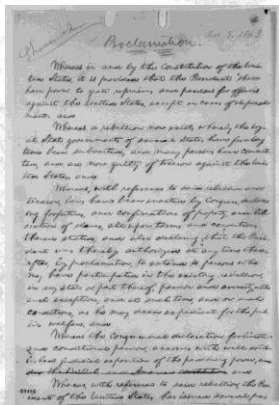 Dec. 8, 1863
Proclamation.
Whereas in and by the Constitution of the Uni-
ted States, it is provided that the President "shall
have power to grant reprieves and pardons for offences
against the United States, except in cases of impeach-
ment," and
Whereas a rebellion now exists whereby the loy-
al State governments of several States have for a long
time been subverted, and many persons have commit-
ted, and are now guilty of treason against the Uni-
ted States, and
Whereas, with reference to said rebellion and
treason, laws have been enacted by Congress, declar-
ing forfeitures, and confiscations of property and lib-
eration of slaves, all upon terms and conditions
therein stated, and also declaring that the Presi-
dent was thereby authorized at any time there-
after, by proclamation, to extend to persons who
may have participated in the existing rebellion,
in any State or part thereof, pardon and amnesty, with
such exceptions, and at such times, and on such
conditions, as he may deem expedient for the pub-
lic welfare, and
Whereas the Congressional declaration for limited
and conditional pardon, accords with well estab-
lished judicial exposition of the pardoning power, and
Whereas, with reference to said rebellion, the Pres-
ident of the United States has issued several proc-